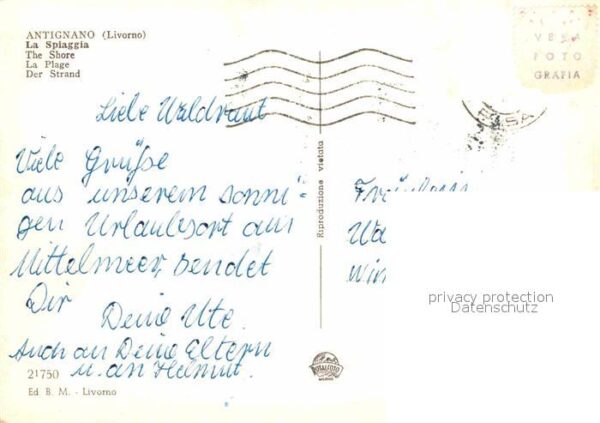 ANTIGNANO (Livorno)
La Spiaggia
The Shore
La Plage
Der Strand
VERA
FOTO
GRAFIA
Liebe Waldraut
Viele Grüße
aus unserem sonni=
gen Urlaubsort am
Mittelmeer, sendet
Dir
Deine Ute.
Auch an Deine Eltern
u. an Helmut.
21750
Ed B. M. - Livorno
Riproduzione vietata
privacy protection
Datenschutz